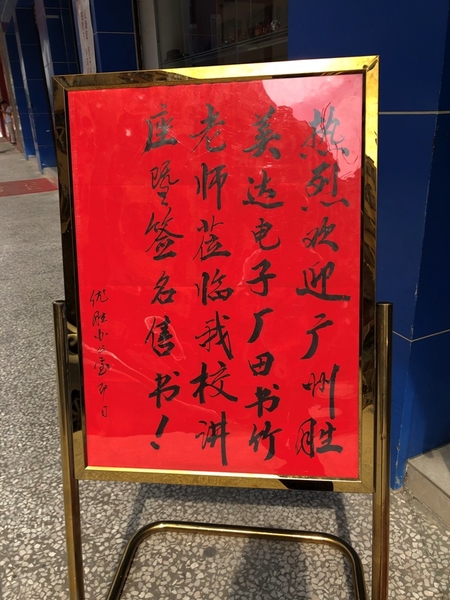 热烈欢迎广州胜
美达电子厂田书竹
老师莅临我校讲
座暨签名售书！
优胜办公室即日